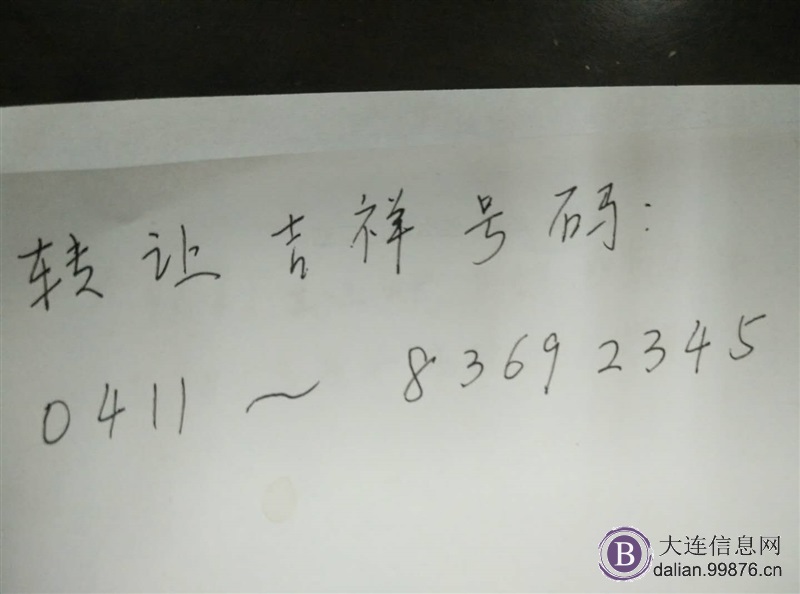 转让吉祥号码:
0411~83692345
B 大连信息网
dalian.99876.cn